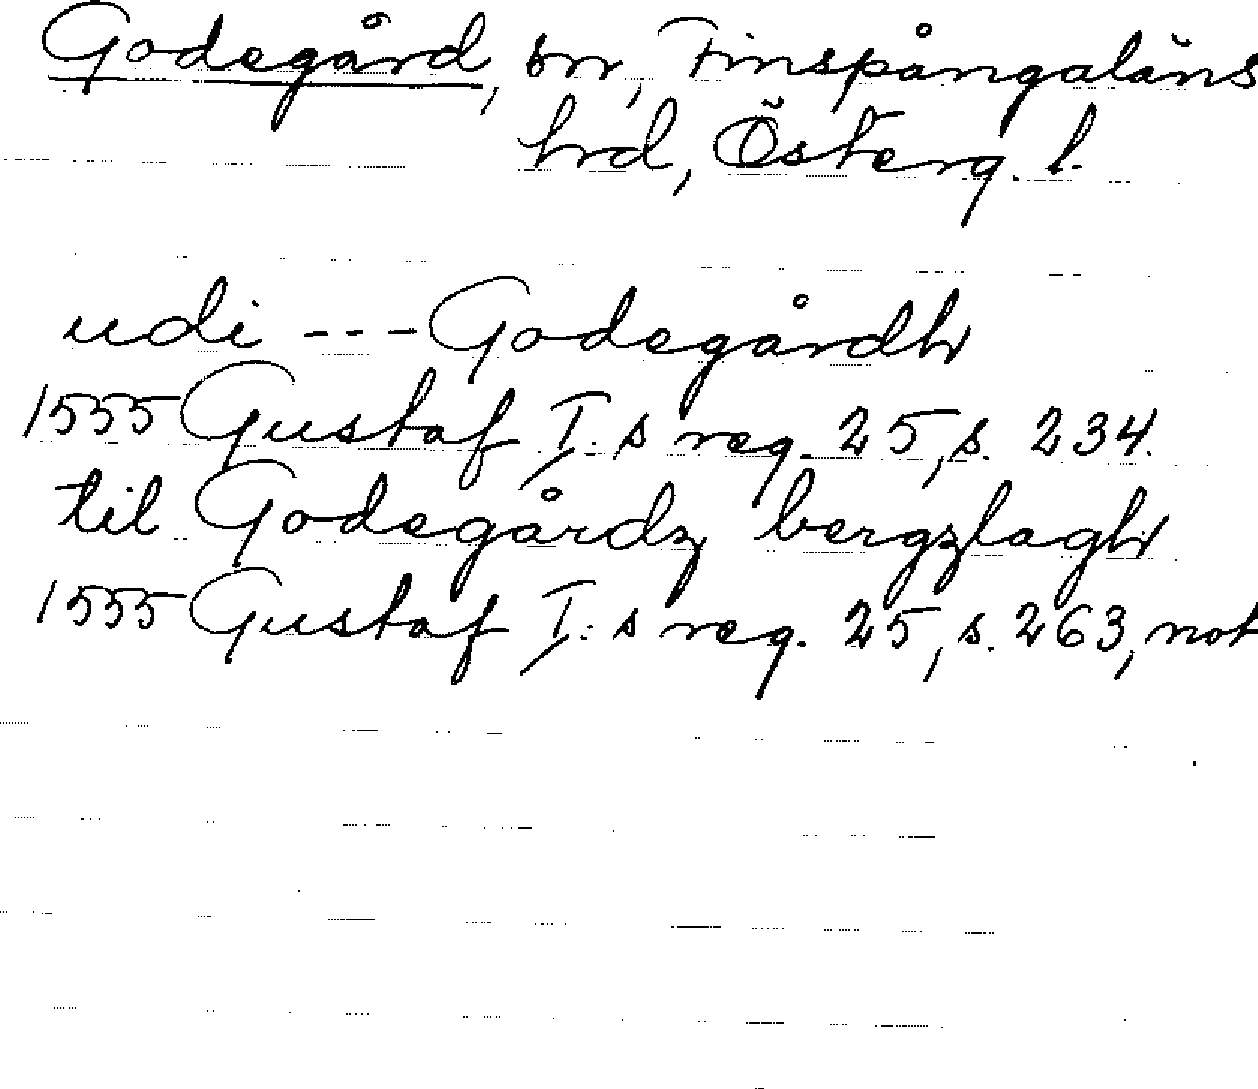 Godegård, sn, Finspångaläns
hrd, Österg. l.
udi --- Godegårdh
1555 Gustaf I: s reg. 25, s. 234.
til Godegårdz bergzlagh
1555 Gustaf I: s reg. 25, s. 263, not